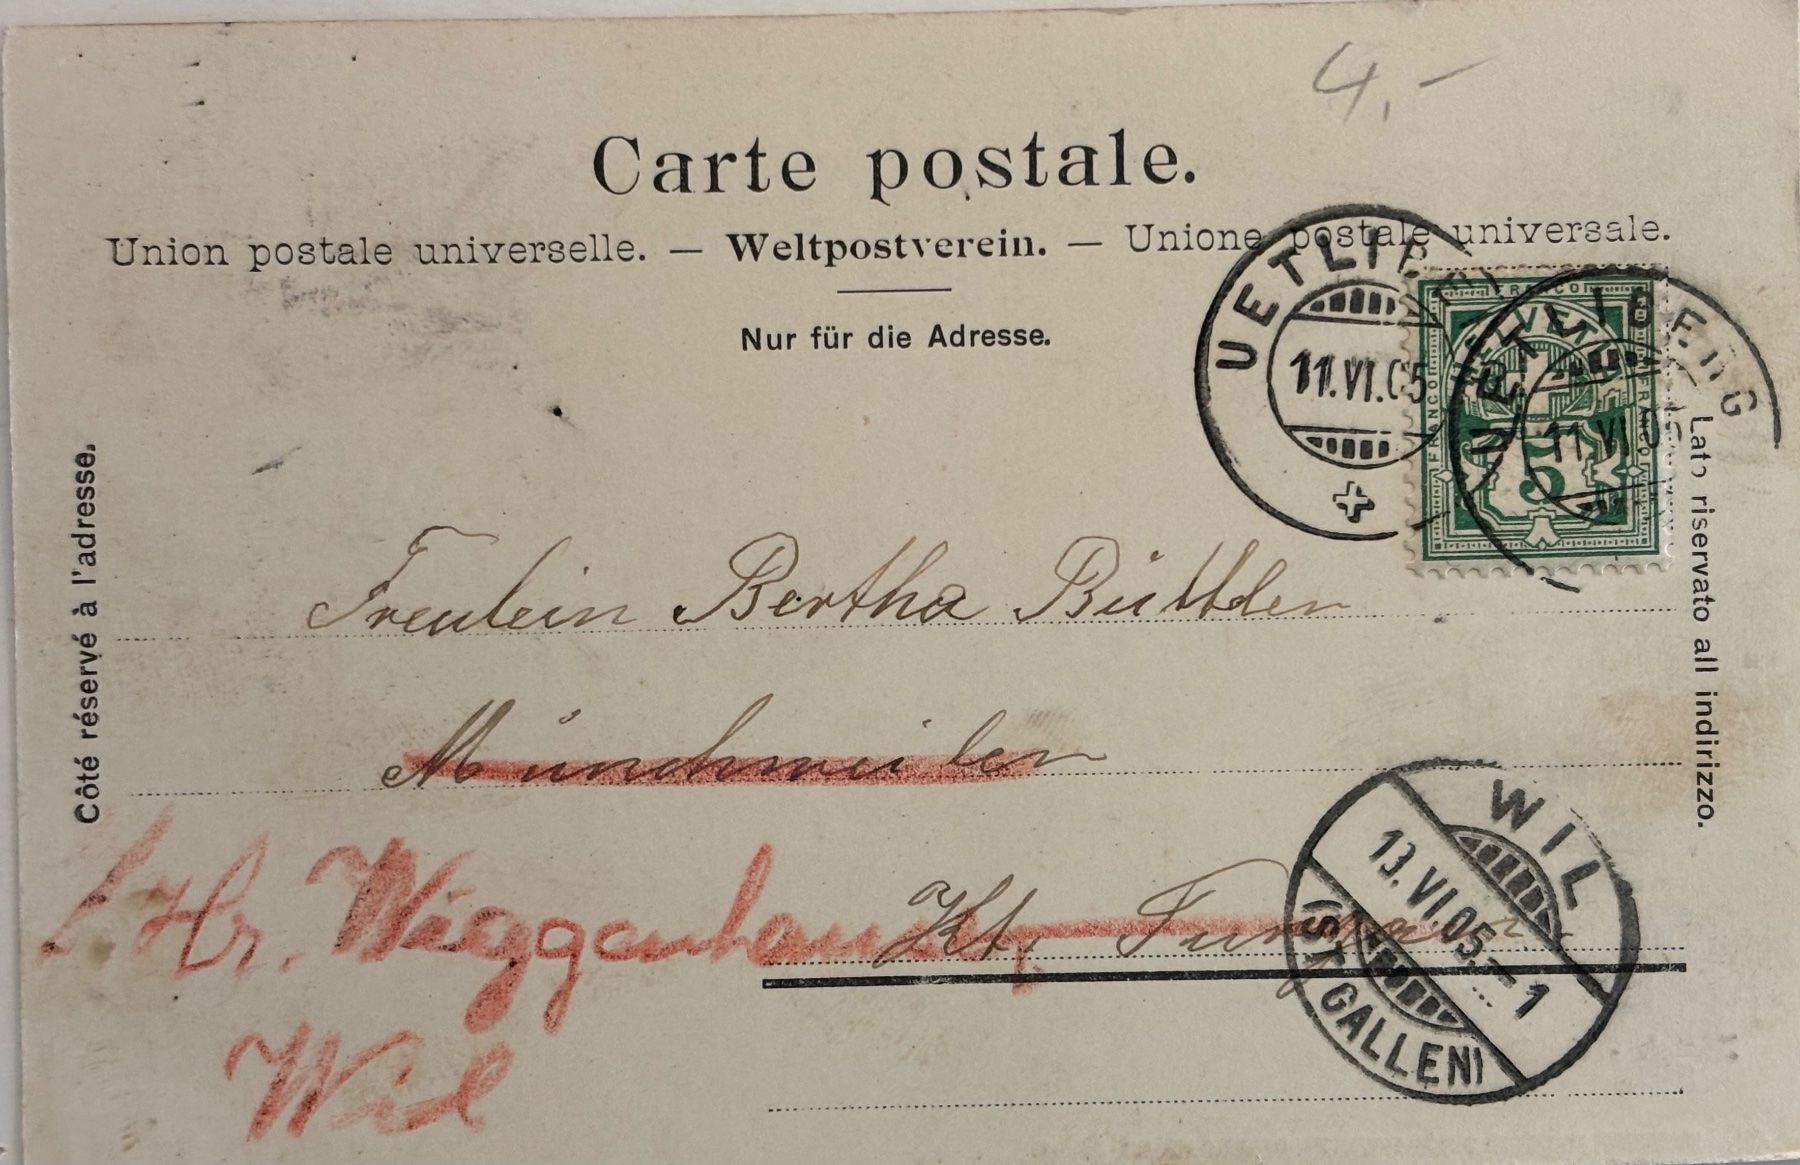 4,-
Carte postale.
Union postale universelle. — Weltpostverein. — Unione postale universale.
Nur für die Adresse.
Côté réservé à l'adresse.
Lato riservato all indirizzo.
UETLIBERG
11.VI.05
UETLIBERG
11.VI.05
FRANCO
FRANCO
FRANCO
HELVETIA
5
Freulein Bertha Büttler
Münchweilen
Kt. Turgau
Hr. Wiggenhauser
Wil
WIL
13.VI.05.–1
(ST GALLEN)